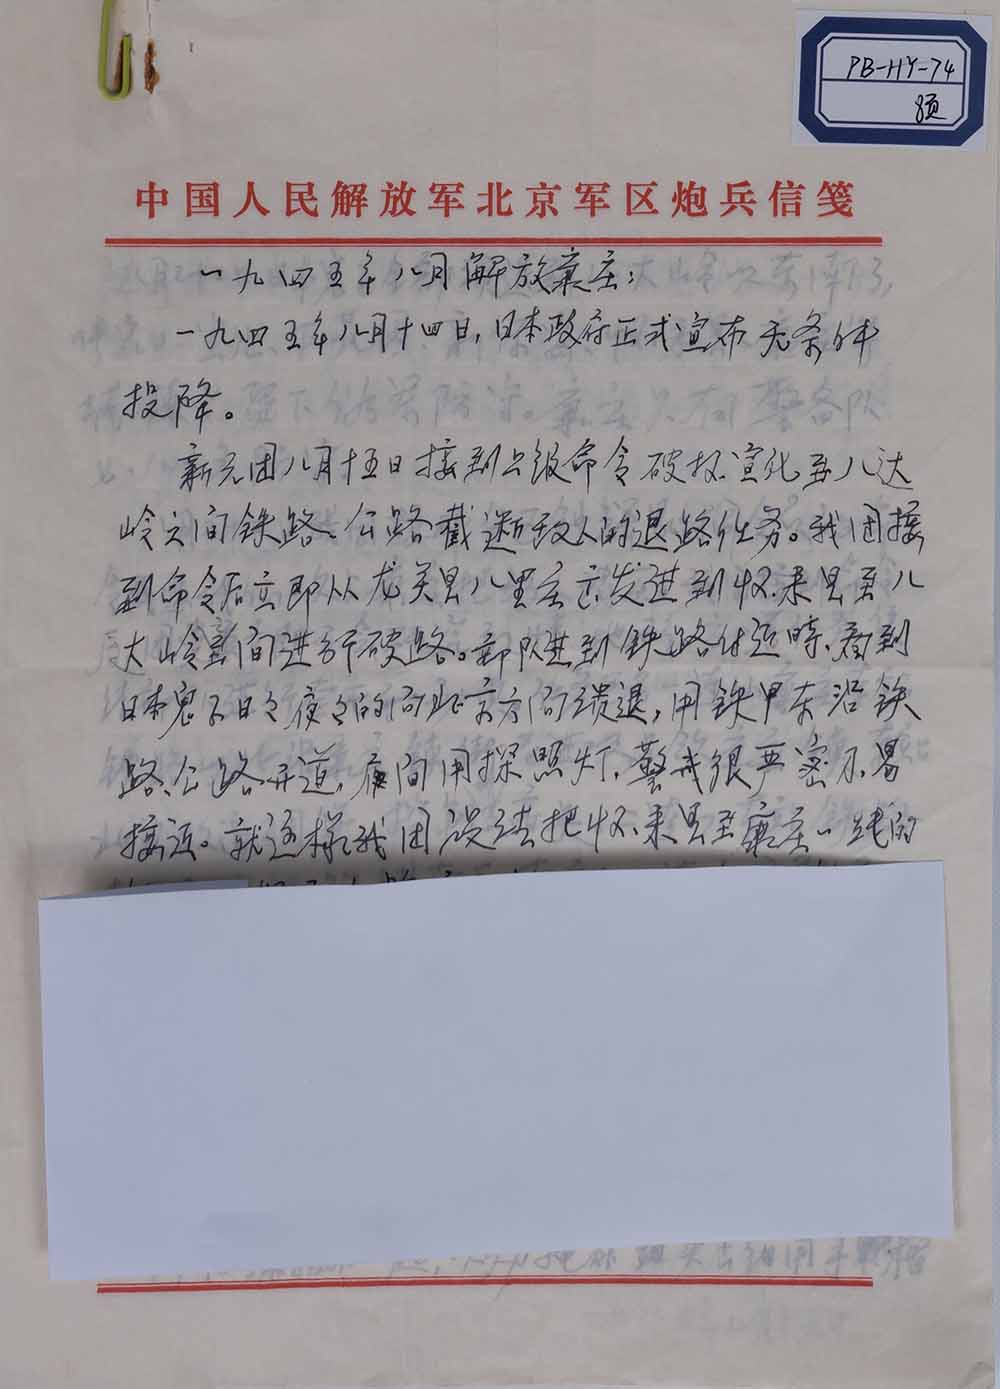 PB-HY-74
8页
中国人民解放军北京军区炮兵信笺
一九四五年八月解放康庄：
一九四五年八月十四日，日本政府正式宣布无条件
投降。
新元团八月十五日接到上级命令破坏宣化至八达
岭之间铁路、公路截断敌人的退路任务。我团接
到命令后立即从龙关县八里庄出发进到怀来县至八
大岭间进行破路。部队进到铁路付近時、看到
日本鬼子日々夜々的向北京方向溃退，用铁甲车沿铁
路、公路开道，夜间用探照灯，警戒很严密不易
接近。就这样我团没法把怀来县至康庄一线的